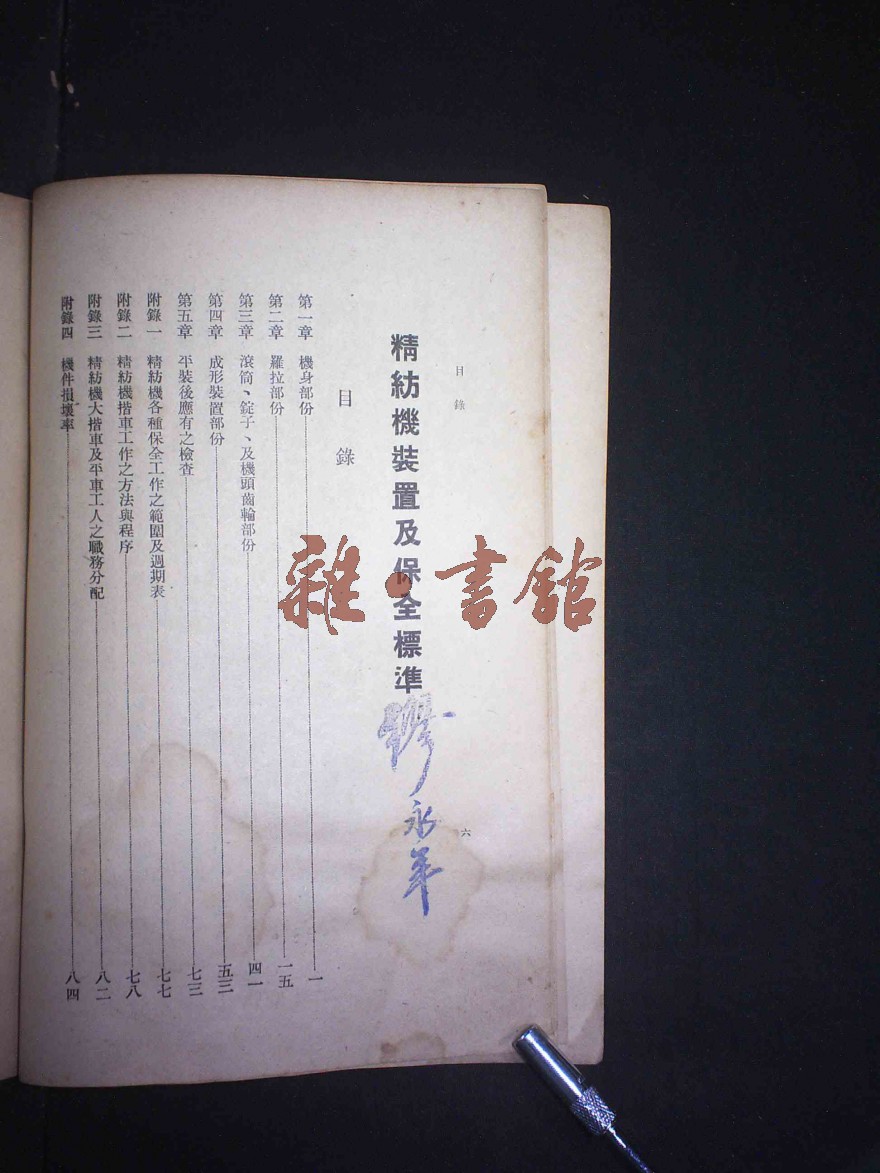 目錄
六
精紡機裝置及保全標準
繆永年
目錄
第一章 機身部份 一
第二章 羅拉部份 一五
第三章 滾筒、錠子、及機頭齒輪部份 四一
第四章 成形裝置部份 五三
第五章 平裝後應有之檢查 七三
附錄一 精紡機各種保全工作之範圍及週期表 七七
附錄二 精紡機揩車工作之方法與程序 七八
附錄三 精紡機大揩車及平車工人之職務分配 八二
附錄四 機件損壞率 八四
雜·書館